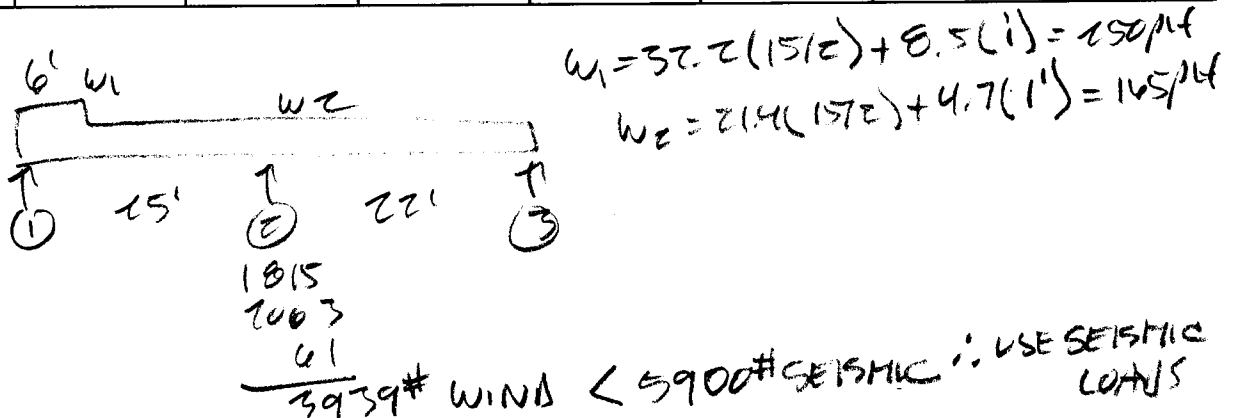 w₁ = 32.2(15/2) + 8.5(1') = 250 plf
6' w1 w2
w2 = 21.4(15/2) + 4.7(1') = 165 plf
25' 22'
① ② ③
1815
2063
61
3939# WIND < 5900# SEISMIC ∴ USE SEISMIC
LOADS